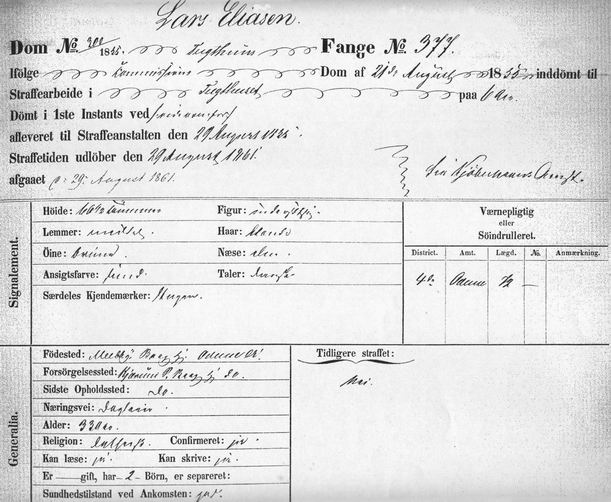 Lars Eliasen.
Dom No 300/1855 Tugthuus Fange No 377.
Ifölge Commissions Dom af 21de August 1855 inddömt til
Straffearbeide i Tugthuset paa 6 Aar.
Dömt i 1ste Instants ved
afleveret til Straffeanstalten den 29 August 1855
Straffetiden udlöber den 29 August 1861.
afgaaet d: 29 August 1861. Kjöbenhavns Amt.
Signalement.
Höide: Tommer Figur:
Lemmer: Haar: blonde
Öine: Næse: alm.
Ansigtsfarve: sund. Taler: dansk
Særdeles Kjendemærker: Ingen.
Værnepligtig
eller
Söindrulleret.
District. Amt. Lægd. No. Anmærkning.
4de Odense —
Generalia.
Födested: Odense
Forsörgelsessted: do.
Sidste Opholdssted: Do.
Næringsvei: Dagleier
Alder: 33 Aar.
Religion: Luthersk. Confirmeret: ja.
Kan læse: ja. Kan skrive: ja.
Er — gift, har 2 Börn, er separeret:
Sundhedstilstand ved Ankomsten: god.
Tidligere straffet:
Nei.